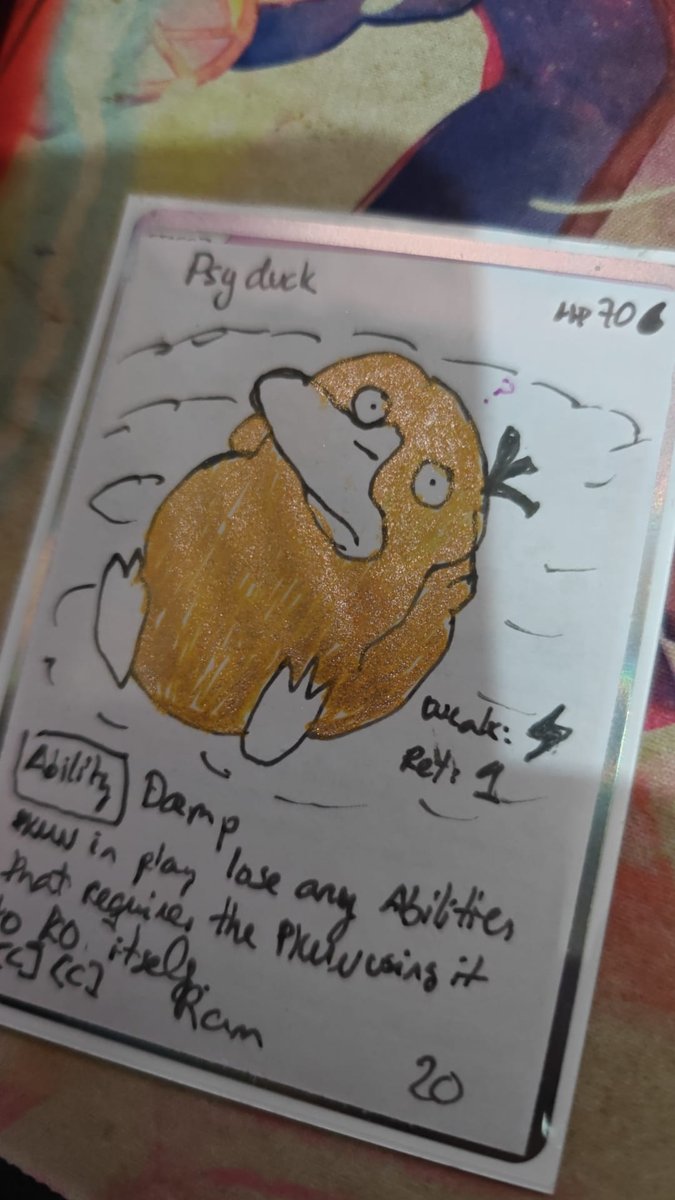 Psyduck
HP 70
?
Weak:
Ret: 1
Ability
Damp
PKMN in play lose any Abilities
that requires the PKMN using it
to KO itself.
[C][C] Ram
20